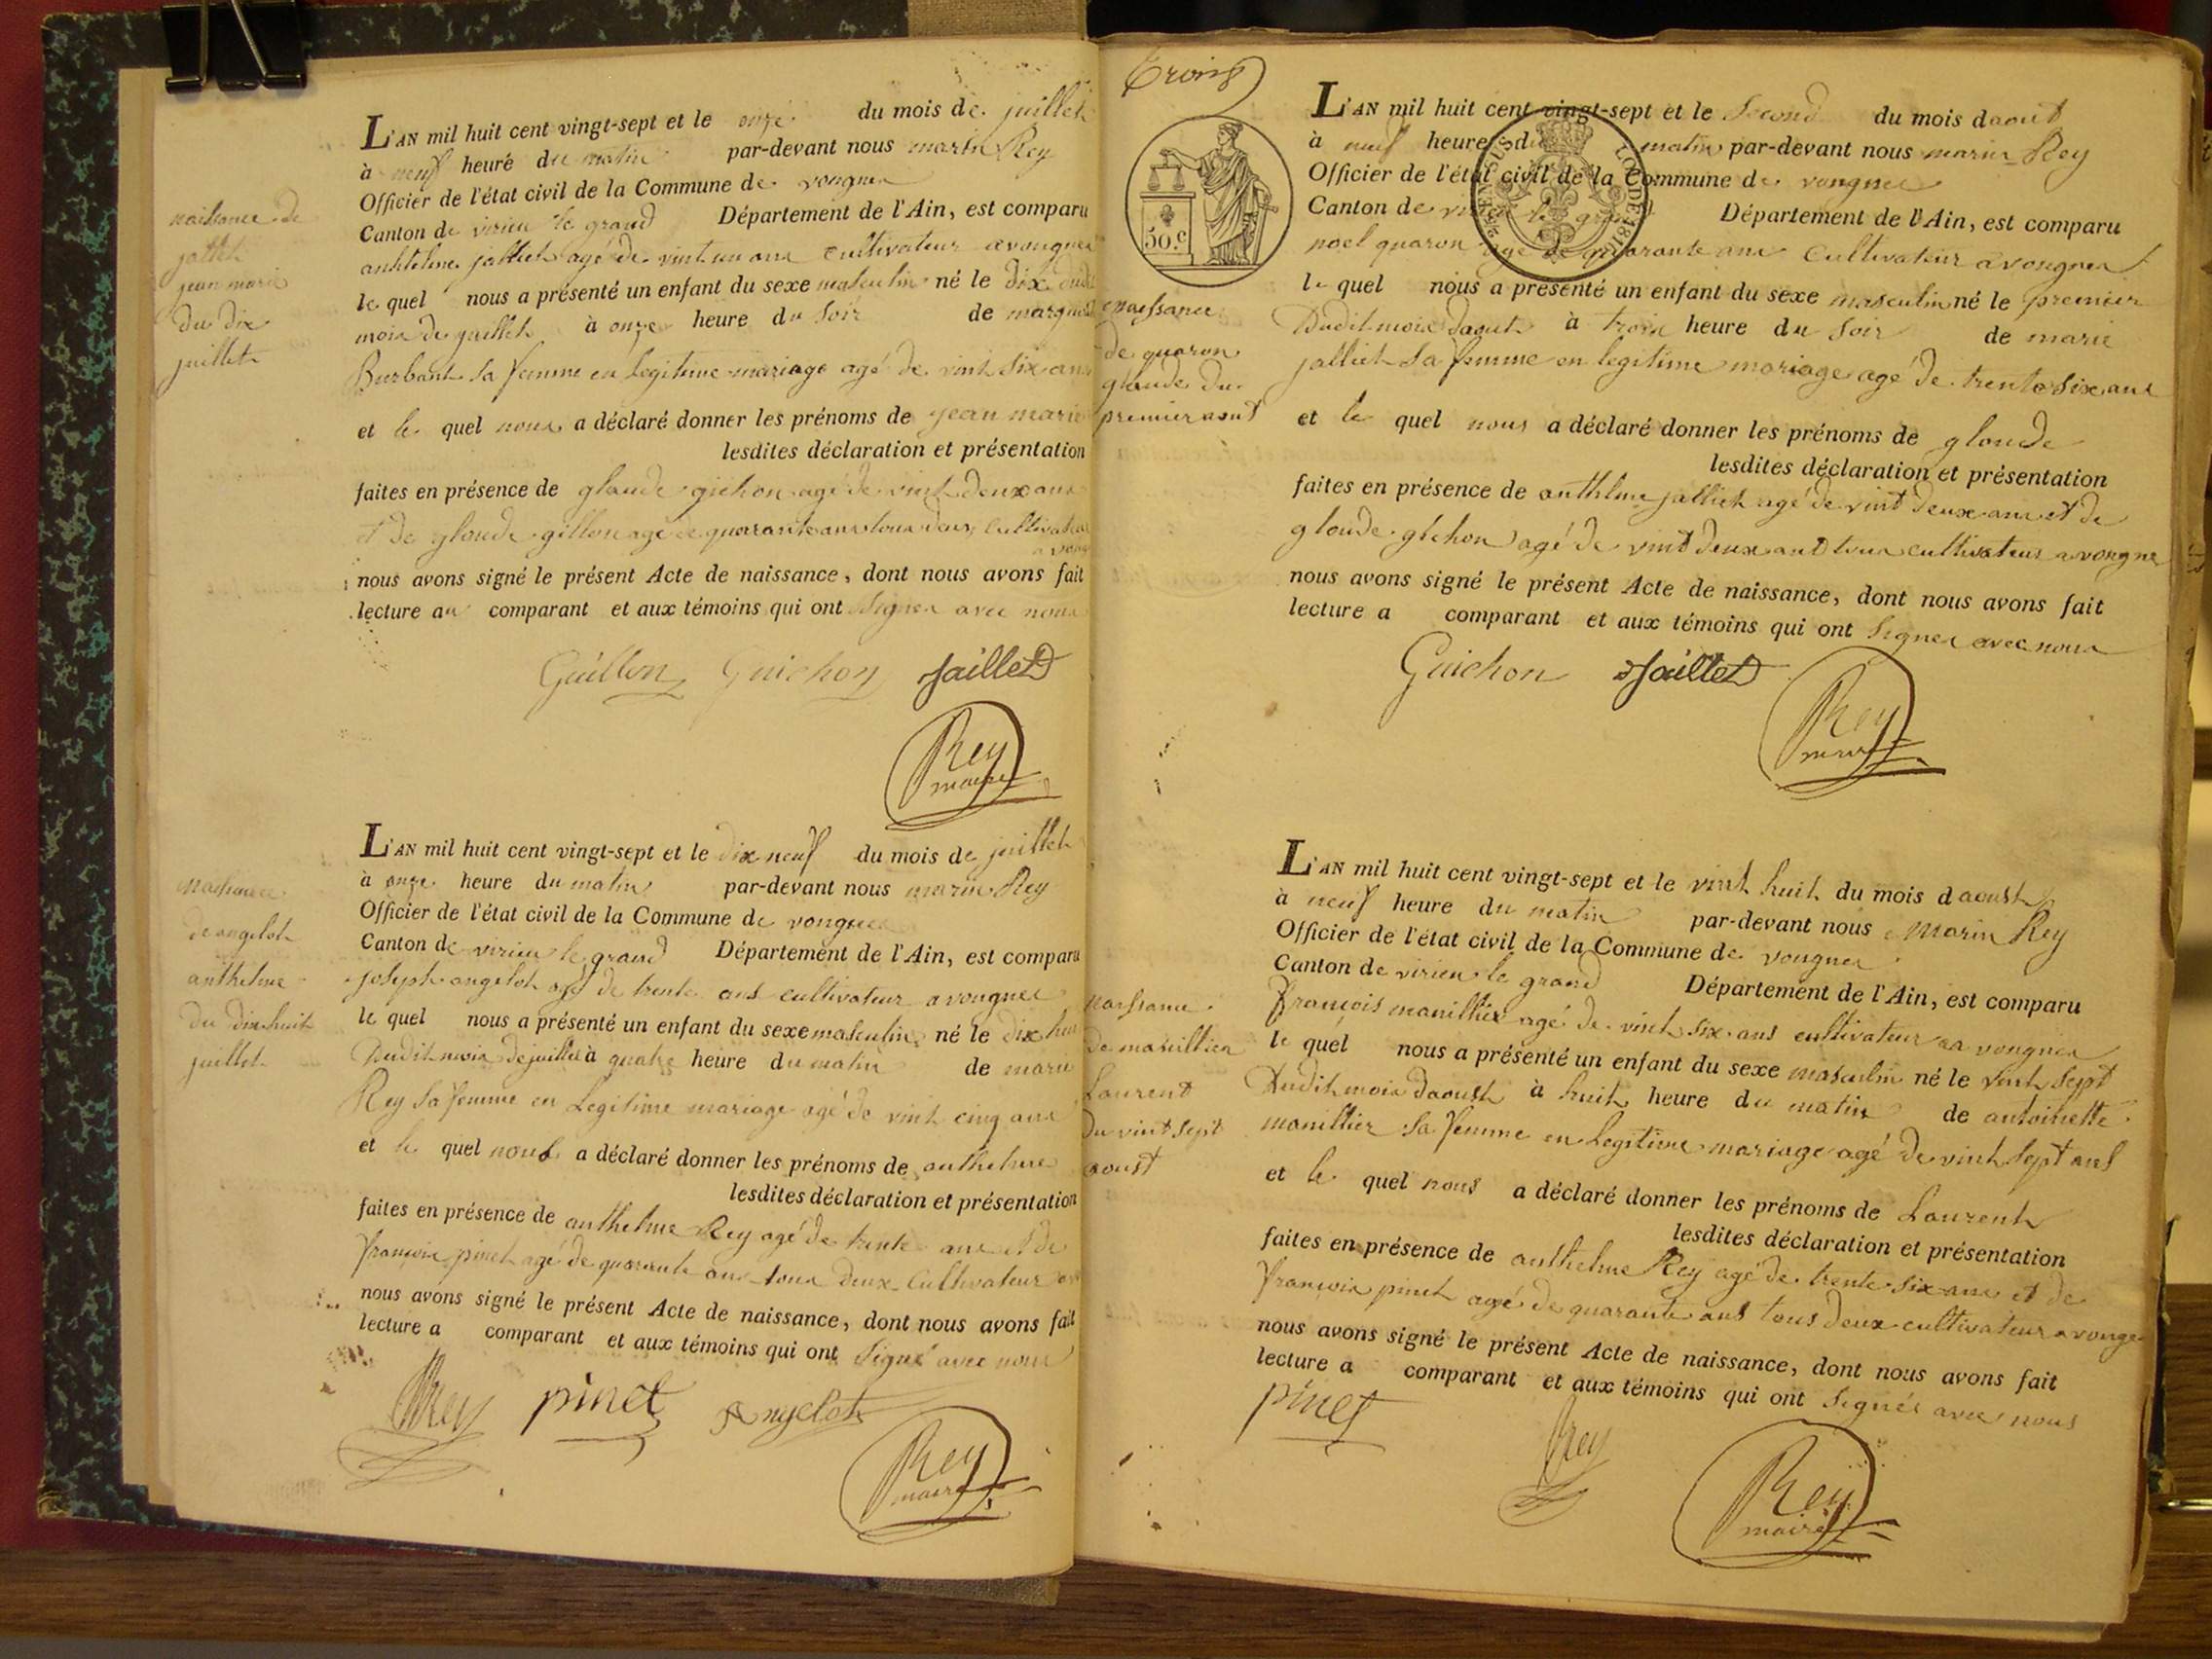 naissance de
jallet
jean marie
du dix
juillet
L'AN mil huit cent vingt-sept et le onze du mois de juillet
à neuf heure du matin par-devant nous marin Rey
Officier de l'état civil de la Commune de vongnes
Canton de virieu le grand Département de l'Ain, est comparu
anthelme jalliet agé de vint un ans cultivateur a vongnes
le quel nous a présenté un enfant du sexe masculin né le dix dudit
mois de juillet à onze heure du soir de
Burbant sa femme en Legitime mariage agé de vint six ans
et le quel nous a déclaré donner les prénoms de jean marie
lesdites déclaration et présentation
faites en présence de glaude gichon agé de vint deux ans
et de glaude gillon agé de quarante ans tous deux cultivateur
a vong
nous avons signé le présent Acte de naissance, dont nous avons fait
lecture au comparant et aux témoins qui ont signer avec nous
Guillon Guichon Jaillet
Rey
maire
naissance
de angelot
anthelme
du dix huit
juillet
L'AN mil huit cent vingt-sept et le dix neuf du mois de juillet
à onze heure du matin par-devant nous marin Rey
Officier de l'état civil de la Commune de vongnes
Canton de virieu le grand Département de l'Ain, est comparu
joseph angelot agé de trente ans cultivateur a vongnes
le quel nous a présenté un enfant du sexe masculin né le dix huit
Dudit mois de juillet à quatre heure du matin de marie
Rey sa femme en Legitime mariage agé de vint cinq ans
et le quel nous a déclaré donner les prénoms de anthelme
lesdites déclaration et présentation
faites en présence de anthelme Rey agé de trente ans et de
françois pinet agé de quarante ans tous deux Cultivateur
nous avons signé le présent Acte de naissance, dont nous avons fait
lecture a comparant et aux témoins qui ont signé avec nous
Rey pinet Angelot
Rey
maire
trois
50.c
naissance
de quaron
glaude du
premier aout
L'AN mil huit cent vingt-sept et le second du mois daout
à neuf heure du matin par-devant nous marin Rey
Officier de l'état civil de la Commune de vongnes
Canton de virieu le grand Département de l'Ain, est comparu
noel quaron agé de quarante ans Cultivateur a vongnes
le quel nous a présenté un enfant du sexe masculin né le premier
Dudit mois daout à trois heure du soir de marie
jalliet sa femme en legitime mariage agé de trente six ans
et le quel nous a déclaré donner les prénoms de gloude
lesdites déclaration et présentation
faites en présence de anthelme jalliet agé de vint deux ans et de
gloude gichon agé de vint deux ans tous cultivateurs a vongne
nous avons signé le présent Acte de naissance, dont nous avons fait
lecture a comparant et aux témoins qui ont signer avec nous
Guichon Jaillet
Rey
maire
naissance
de manillier
Laurent
du vint sept
aoust
L'AN mil huit cent vingt-sept et le vint huit du mois daoust
à neuf heure du matin par-devant nous Marin Rey
Officier de l'état civil de la Commune de vongnes
Canton de virieu le grand Département de l'Ain, est comparu
françois manillier agé de vint six ans cultivateur aa vongnes
le quel nous a présenté un enfant du sexe masculin né le vint sept
Dudit mois daoust à huit heure du matin de antoinette
manillier sa femme en Legitime mariage agé de vint sept ans
et le quel nous a déclaré donner les prénoms de Laurent
lesdites déclaration et présentation
faites en présence de anthelme Rey agé de trente six ans et de
françois pinet agé de quarante ans tous deux cultivateur a vonge
nous avons signé le présent Acte de naissance, dont nous avons fait
lecture a comparant et aux témoins qui ont signés avec nous
pinet
Rey
Rey
maire